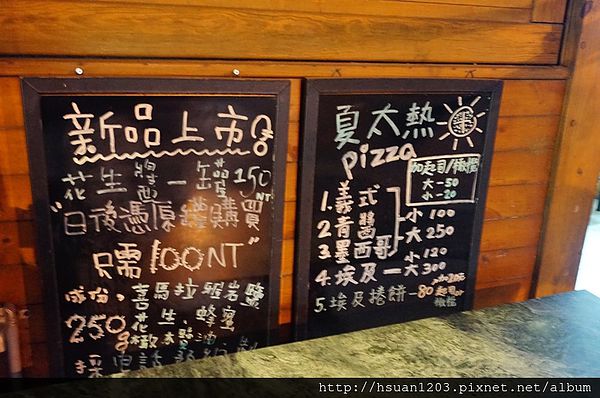 新品上市
花生醬一罐150NT
"日後憑原罐購買
只需100NT"
成份。喜馬拉班岩鹽
250g花生 蜂蜜
橄欖油
夏太熱
pizza
加起司/橄欖
大-50
小-20
1.義式
2.青醬
3.墨西哥
小100
大250
4.埃及-
小120
大300
5.埃及捲餅-80
加20元
起司or
橄欖
http://hsuan1203.pixnet.net/album